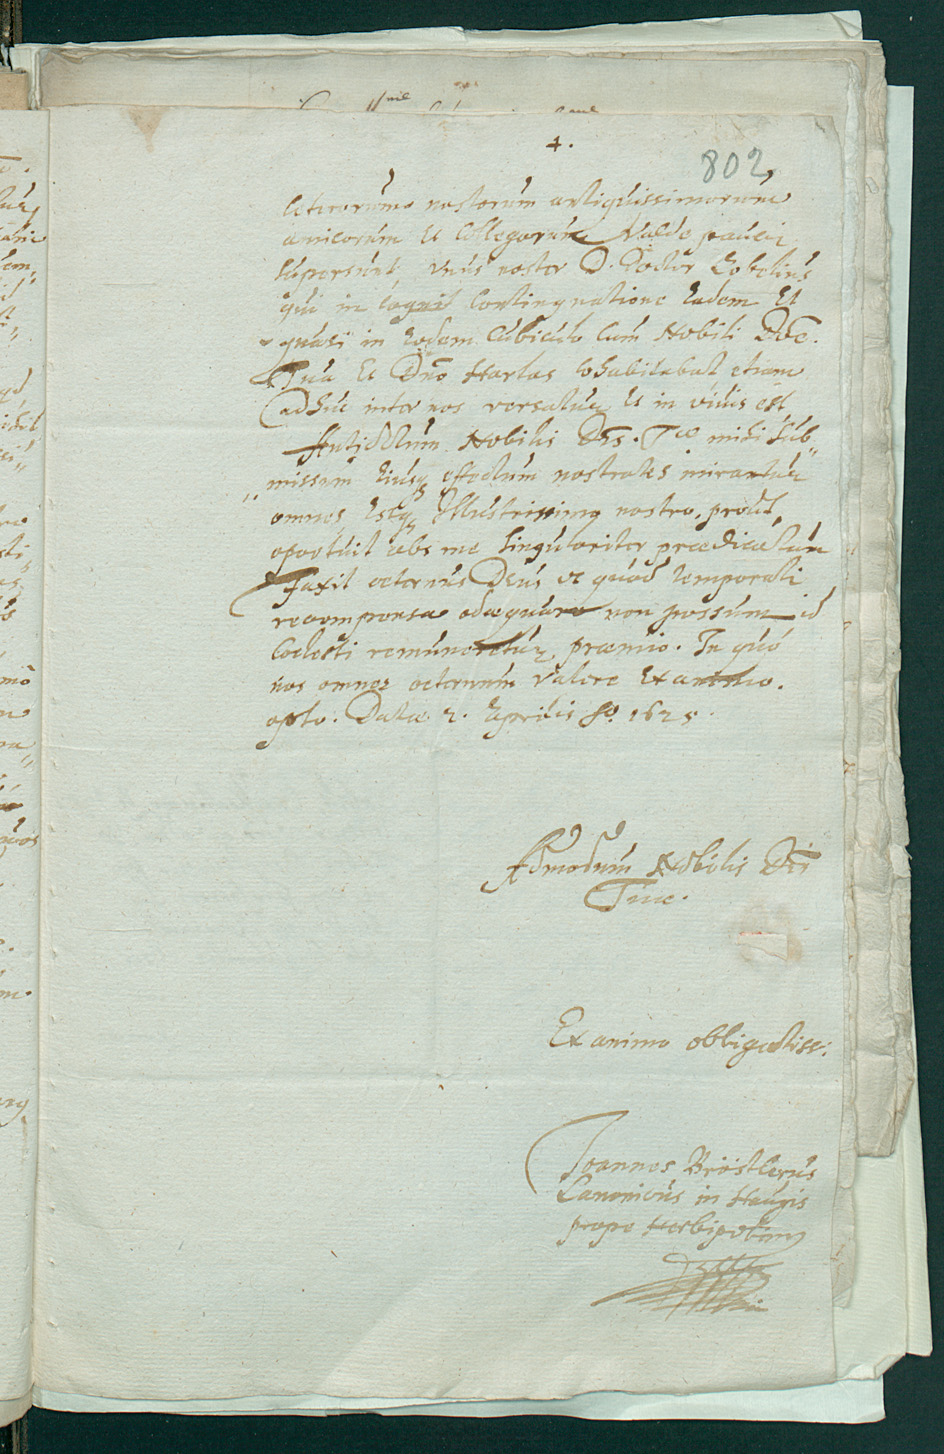 4.
802
ceterorum nostrorum antiquissimorum
amicorum et Collegarum valde pauci
supersunt unus noster D. Doctor Lobelius
qui in Contingnatione eadem et
quasi in eodem Cubiculo Cum Nobili Doe.
Tua et Dno Harlas Cohabitabat etiam
adhuc inter nos versatur et in vivis est
Antidotum Nobilis Dnis. Tae mihi sub„
„missum eiusq effectum nostrates mirantur
omnes estq Illustrissimo nostro, prout
oportuit abs me singulariter praedicatum
Faxit aeternus Deus ut quod temporali
recompensa adaequare non possum id
Coelesti remuneretur praemio. In quo
nos omnes aeternum valere ex animo.
opto. Datae 2. Aprilis Ao. 1625.
Admodum Nobilis Dnis
Tuae.
Ex animo obligatiss:
Joannes Bröstlerus
Canonicus in Haugis
prope Herbipolim